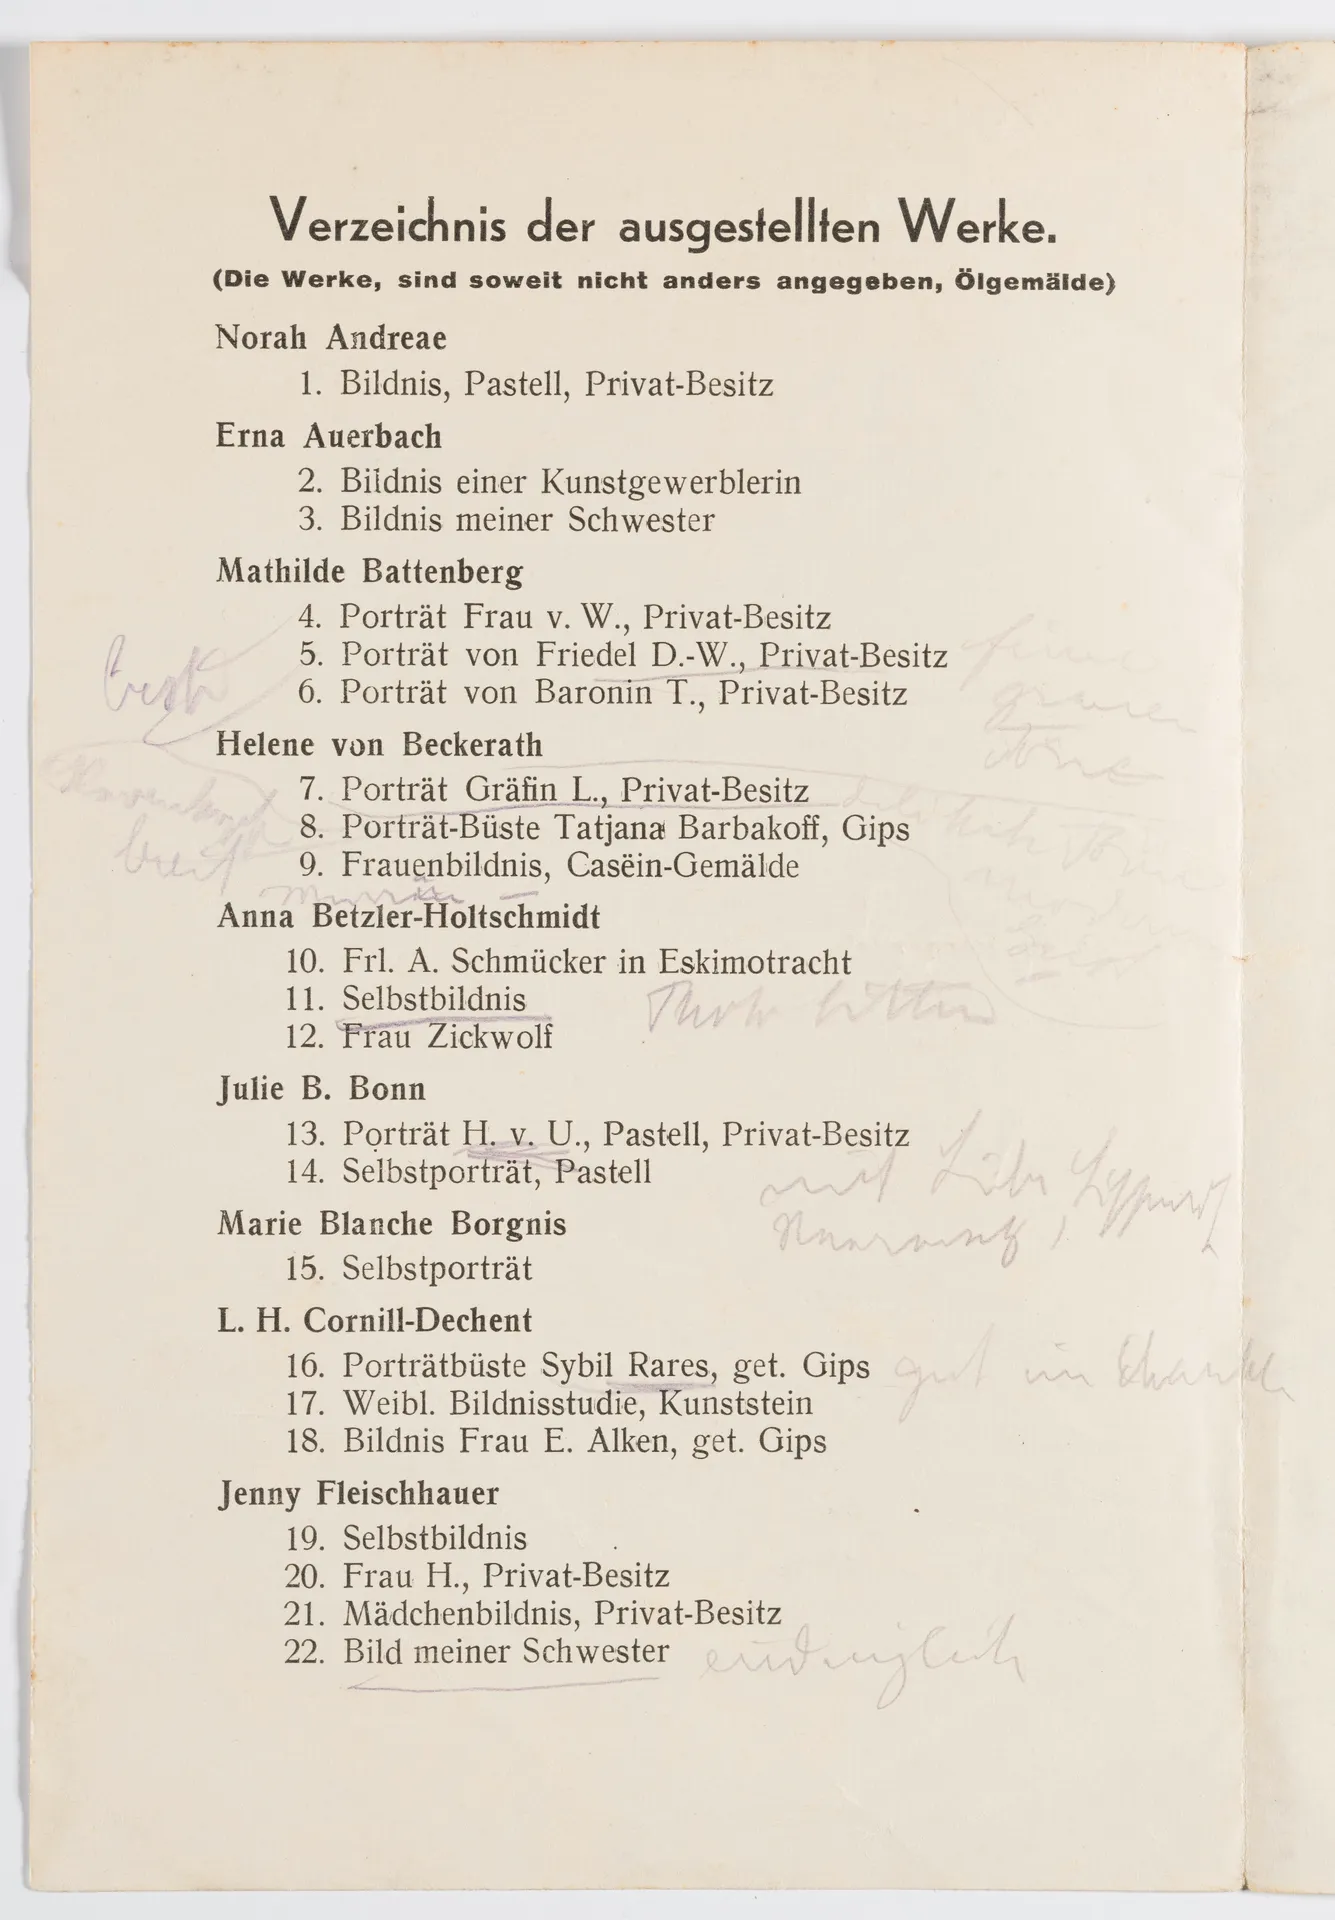 Verzeichnis der ausgestellten Werke.
(Die Werke, sind soweit nicht anders angegeben, Ölgemälde)
Norah Andreae
1. Bildnis, Pastell, Privat-Besitz
Erna Auerbach
2. Bildnis einer Kunstgewerblerin
3. Bildnis meiner Schwester
Mathilde Battenberg
4. Porträt Frau v. W., Privat-Besitz
5. Porträt von Friedel D.-W., Privat-Besitz
6. Porträt von Baronin T., Privat-Besitz
Helene von Beckerath
7. Porträt Gräfin L., Privat-Besitz
8. Porträt-Büste Tatjana Barbakoff, Gips
9. Frauenbildnis, Casëin-Gemälde
Anna Betzler-Holtschmidt
10. Frl. A. Schmücker in Eskimotracht
11. Selbstbildnis
12. Frau Zickwolf
Julie B. Bonn
13. Porträt H. v. U., Pastell, Privat-Besitz
14. Selbstporträt, Pastell
Marie Blanche Borgnis
15. Selbstporträt
L. H. Cornill-Dechent
16. Porträtbüste Sybil Rares, get. Gips gut im
17. Weibl. Bildnisstudie, Kunststein
18. Bildnis Frau E. Alken, get. Gips
Jenny Fleischhauer
19. Selbstbildnis
20. Frau H., Privat-Besitz
21. Mädchenbildnis, Privat-Besitz
22. Bild meiner Schwester